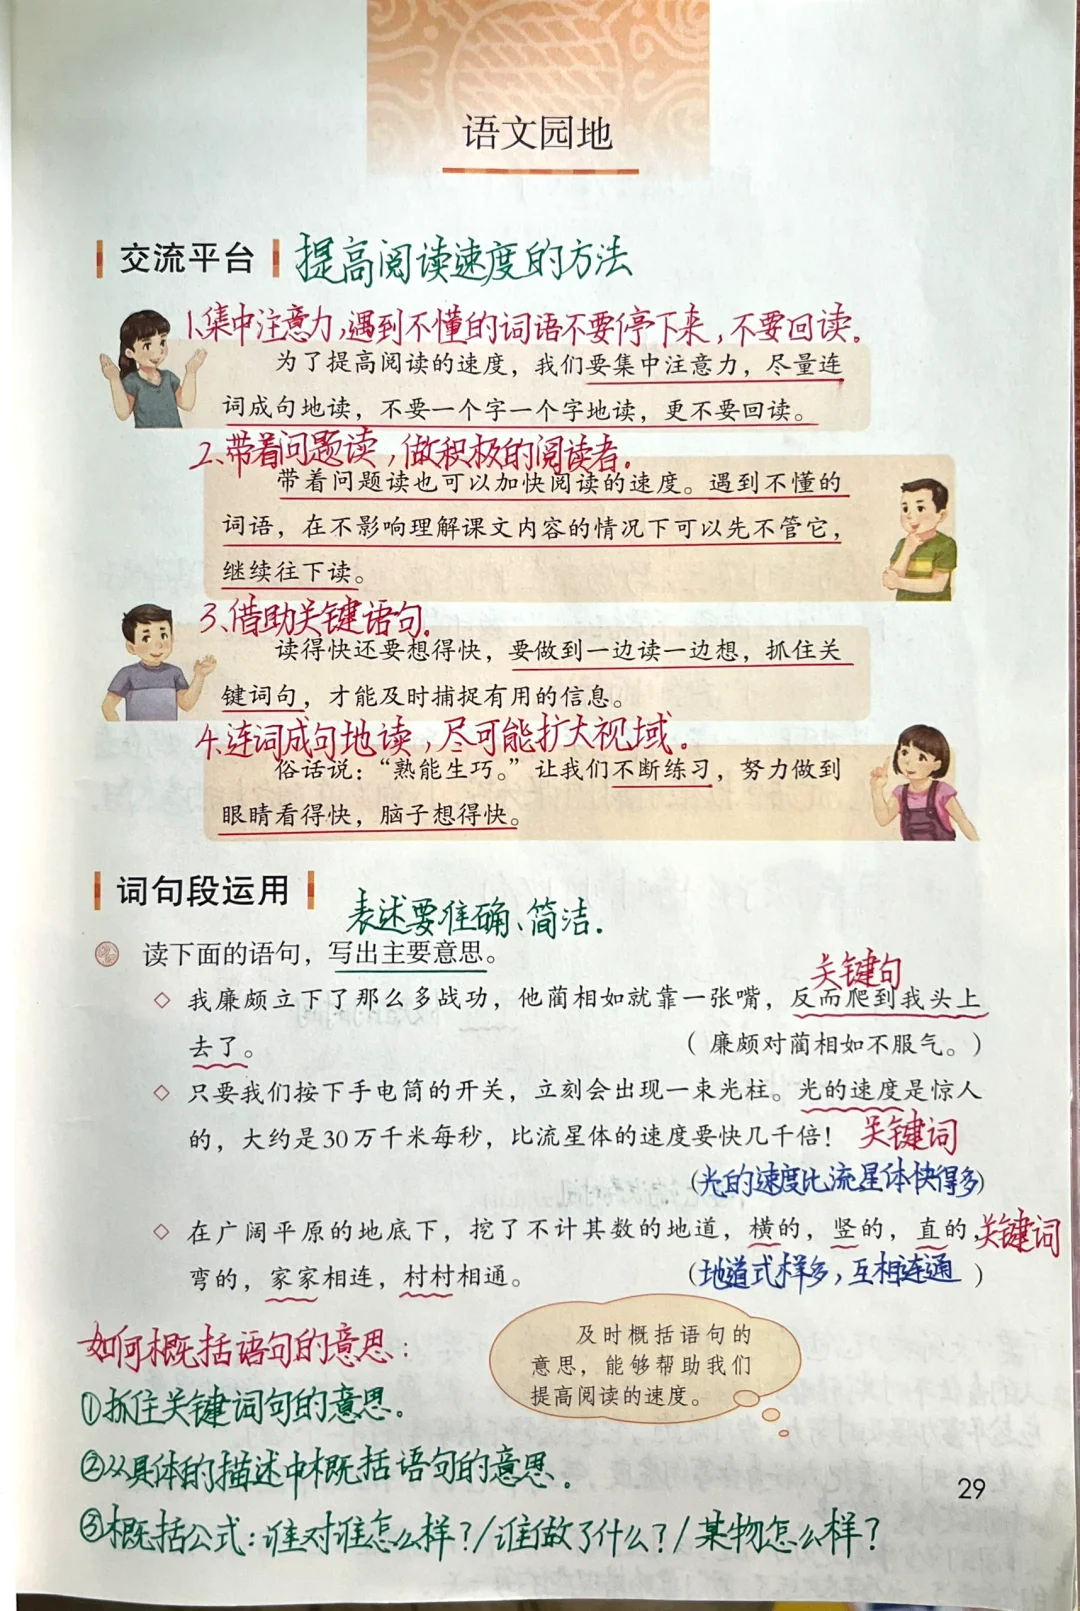 语文园地
交流平台 提高阅读速度的方法
1、集中注意力,遇到不懂的词语不要停下来,不要回读。
为了提高阅读的速度，我们要集中注意力，尽量连
词成句地读，不要一个字一个字地读，更不要回读。
2、带着问题读,做积极的阅读者.
带着问题读也可以加快阅读的速度。遇到不懂的
词语，在不影响理解课文内容的情况下可以先不管它，
继续往下读。
3、借助关键语句.
读得快还要想得快，要做到一边读一边想，抓住关
键词句，才能及时捕捉有用的信息。
4.连词成句地读,尽可能扩大视域.
俗话说：“熟能生巧。”让我们不断练习，努力做到
眼睛看得快，脑子想得快。
词句段运用
表述要准确、简洁.
读下面的语句，写出主要意思。
关键句
◇ 我廉颇立下了那么多战功，他蔺相如就靠一张嘴，反而爬到我头上
去了。（廉颇对蔺相如不服气。）
◇ 只要我们按下手电筒的开关，立刻会出现一束光柱。光的速度是惊人
的，大约是30万千米每秒，比流星体的速度要快几千倍！ 关键词
(光的速度比流星体快得多)
◇ 在广阔平原的地底下，挖了不计其数的地道，横的，竖的，直的，关键词
弯的，家家相连，村村相通。（地道式样多,互相连通）
及时概括语句的
意思，能够帮助我们
提高阅读的速度。
如何概括语句的意思:
①抓住关键词句的意思。
②从具体的描述中概括语句的意思。
③概括公式:谁对谁怎么样?/谁做了什么?/某物怎么样?
29